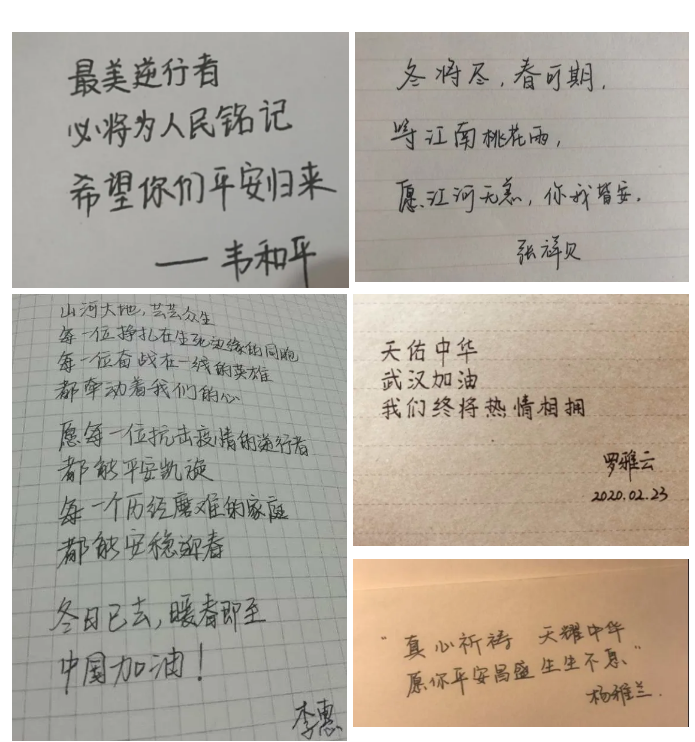 最美逆行者
必将为人民铭记
希望你们平安归来
——韦和平
冬将尽，春可期，
等江南桃花雨，
愿江河无恙，你我皆安。
张祥贝
山河大地，芸芸众生
每一位挣扎在生死边缘的同胞
每一位奋战在一线的英雄
都牵动着我们的心
愿每一位抗击疫情的逆行者
都能平安凯旋
每一个历经磨难的家庭
都能安稳迎春
冬日已去，暖春即至
中国加油！
李惠
天佑中华
武汉加油
我们终将热情相拥
罗雅云
2020.02.23
“真心祈祷 天耀中华
愿你平安昌盛 生生不息”
杨雅兰